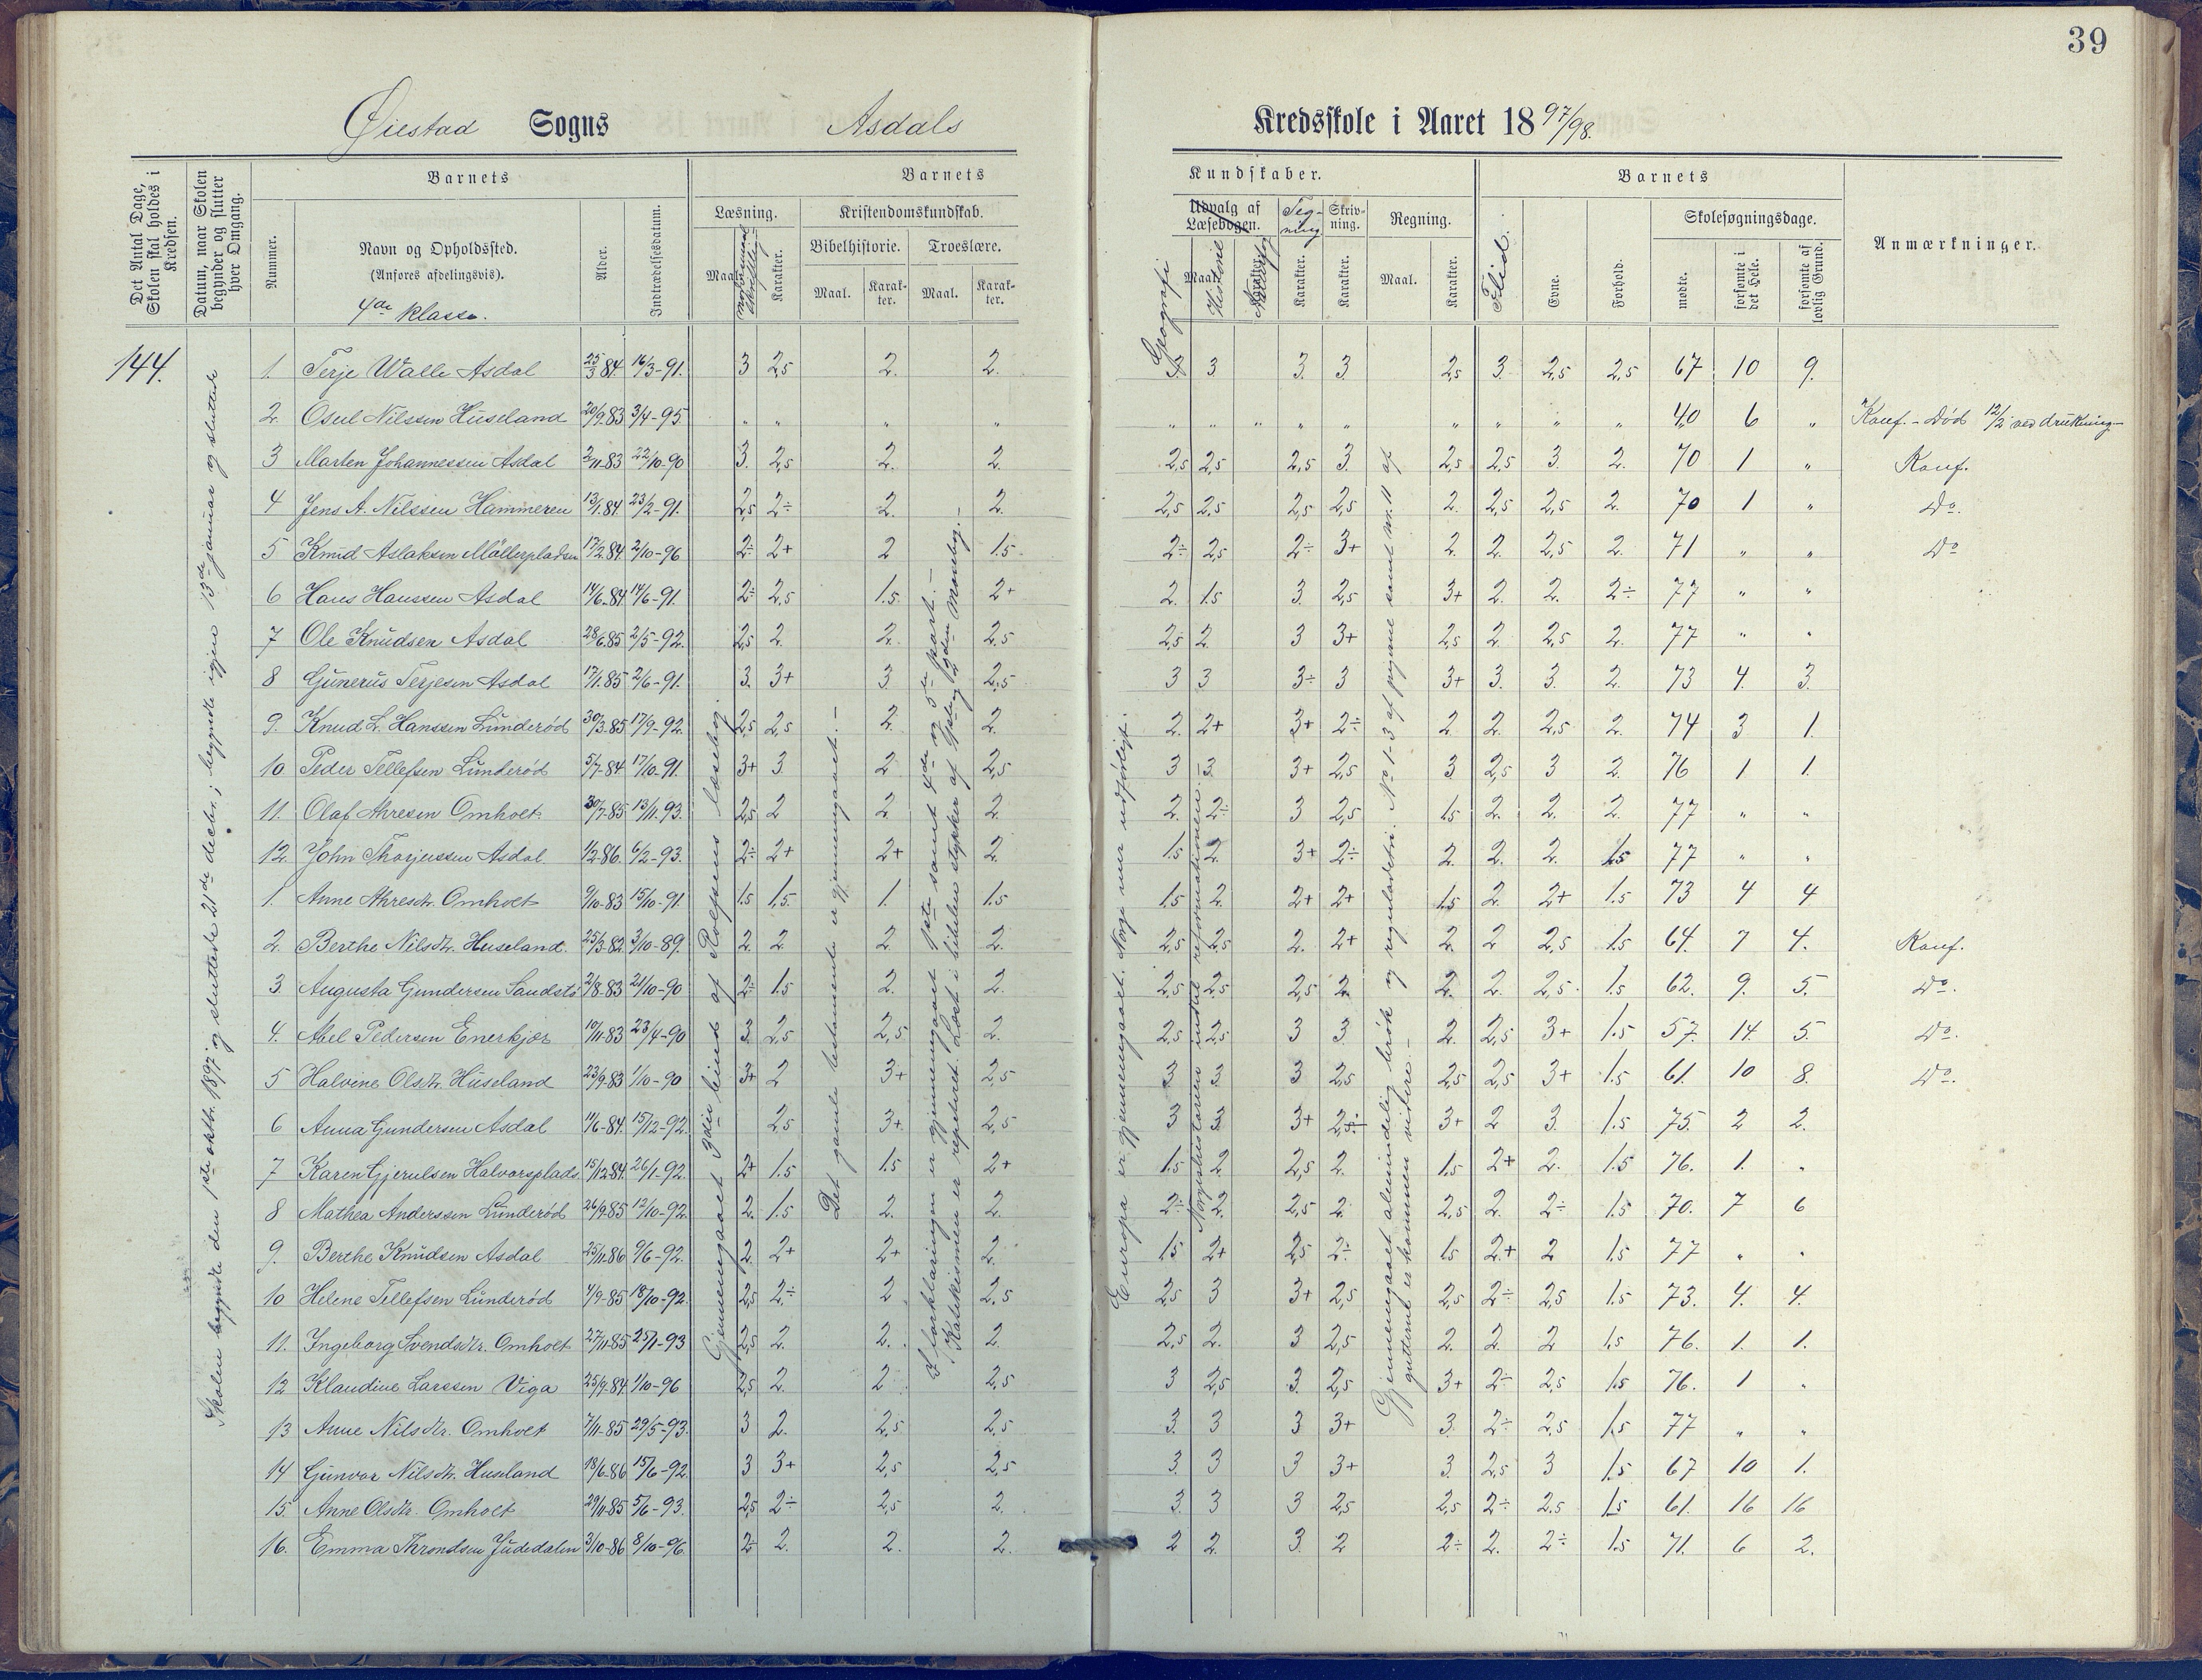 39
Øiestad Sogns Asdals Kredsskole i Aaret 1897/98.
Det Antal Dage, Skolen skal holdes i Kredsen.
Datum, naar Skolen begynder og slutter hver Omgang.
Barnets
Nummer.
Navn og Opholdssted.
(Anføres afdelingsvis).
4de klasse.
Alder.
Indtrædelsesdatum.
Barnets Kundskaber.
Læsning.
Maal.
Karakter.
Kristendomskundskab.
Bibelhistorie.
Maal.
Karakter.
Troeslære.
Maal.
Karakter.
Udvalg af Læsebogen.
Geografi
Maal.
Historie
Karakter.
Tegning
Karakter.
Skrivning.
Karakter.
Regning.
Maal.
Karakter.
Barnets
Flid.
Evne.
Forhold.
Skolesøgningsdage.
mødte.
forsømte i det Hele.
forsømte af lovlig Grund.
Anmærkninger.
144.
Skolen begyndte den 1ste oktbr. 1897 og sluttede 21de decbr.; begyndte igjen 13de januar og sluttede
Gjennemgaaet 3die bind af Rolfsens læsebog.
Det gamle testamente er gjennemgaaet.
I forklaringen er gjennemgaaet 1ste samt 4de og 5te part.
Katekismen er repeteret. Læst i bibelen stykker af 1ste og 2den Mosebog.
Europa er gjennemgaaet. Norge mer udførligt.
Norgeshistorien indtil reformationen.
Gjennemgaaet almindelig brøk og reguladetri. No 1-3 af pigerne samt nr. 11 af gutterne er kommen videre.
1. Terje Walle Asdal 25/3 84. 16/3-91. 3 2,5 2. 2. 3. 3 3. 3 2,5 3. 2,5 2,5 67 10 9.
2. Osul Nilssen Huseland 20/9.83 3/4-95. " " " " " " " " " " " " " 40 6 " Konf. - Død 12/2 ved drukning
3 Marten Johannessen Asdal 2/11-83 22/10-90 3. 2,5 2. 2. 2,5 2,5 2,5 3. 2,5 2,5 3. 2. 70 1 " Konf.
4 Jens A. Nilssen Hammeren 13/1.84. 23/2-91. 2,5 2÷ 2. 2. 2,5 2,5 2,5 2,5 2. 2,5 2,5 2. 70 1 " Do.
5 Knud Aslaksen Möllerpladsen 17/2.84. 2/10-96 2÷ 2+ 2 1.5 2÷ 2,5 2÷ 3+ 2. 2. 2,5 2. 71 " " Do
6 Hans Hanssen Asdal 14/6-84 14/6-91. 2÷ 2,5 1.5 2+ 2. 1.5 3. 2,5 3+ 2. 2. 2÷ 77 " "
7 Ole Knudsen Asdal 28/6.85 2/5-92. 2,5 2. 2. 2.5 2,5 2. 3 3+ 2,5 2. 2,5 2. 77 " "
8 Gunerus Terjesen Asdal 17/1.85 2/6-91. 3. 3+ 3. 2,5 3 3 3÷ 3 3+ 3. 3. 2. 73 4. 3.
9. Knud L. Hanssen Lunderød 30/3-85 17/9-92. 2,5 2,5 2. 2. 2. 2+ 3+ 2÷ 2. 2. 2,5 2. 74 3 1.
10 Peder Tellefsen Lunderød 5/7-84 17/10-91. 3+ 3. 2 2,5 3 3. 3+ 2,5 3. 2,5 3 2. 76 1 1.
11. Olaf Ahresen Omholt 30/7-85 13/11-93. 2,5 2 2. 2. 2. 2÷ 3 2,5 1.5 2. 2. 2. 77 " "
12. John Thorjussen Asdal 1/2-86. 6/2-93. 2÷ 2+ 2+ 2. 1.5 2. 3+ 2÷ 2. 2. 2. 1.5 77 " "
1. Anne Ahresdtr. Omholt 9/10-83 15/10-91. 1.5 1,5. 1 1.5 1.5 2. 2+ 2+ 1.5 2. 2+ 1.5 73 4 4
2. Berthe Nilsdtr. Huseland. 25/3-82. 3/10-89. 2. 2 2. 2. 2,5 2,5 2. 2+ 2. 2 2,5 1.5 64. 7 4. Konf.
3. Augusta Gundersen Sandstø 2/8-83 21/10-90 2÷ 1.5 2. 2. 2,5 2,5 2,5 2. 2. 2. 2,5. 1.5 62. 9. 5. Do.
4. Abel Pedersen Enerkjær 10/11-83 23/4-90 3. 2,5 2,5 2. 2,5 2,5 3 3. 2. 2,5 3+ 1.5 57. 14. 5. Do.
5 Halvine Olsdtr. Huseland 23/9-83 1/10-90 3+ 2 3+ 2,5 3 3. 3 2,5 2,5 2,5 3+ 1.5 61. 10 8. Do.
6 Anna Gundersen Asdal 11/6-84. 15/12-92. 2,5 3+. 2,5 3 3. 3+ 2,5 3+ 2 3. 1.5 75. 2 2.
7 Karen Gjerulsen Halvorsplads. 15/12.84. 26/1-92. 2+ 1.5 1.5 2+ 1.5 2 2,5 2. 1.5 2+ 2. 1.5 76. 1. "
8 Mathea Anderssen Lunderød 26/9-85 12/10-92. 2. 1.5 2. 2. 2÷ 2. 2,5 2. 2,5 2. 2÷ 1.5 70. 7 6
9. Berthe Knudsen Asdal 25/11-86 9/6-92. 2. 2+ 2+ 2. 1.5 2+ 2,5 2÷ 1.5 2+ 2 1.5 77 " "
10 Helene Tellefsen Lunderød 4/9-85 18/10-92. 2,5 2÷ 2 2.5 2,5 3 3+ 2,5 2,5 2÷ 2,5 1.5 73. 4. 4.
11. Ingeborg Svendsdtr. Omholt 27/11-85 25/1-93 2,5 2. 2. 2. 2,5 2. 3 2,5 2. 2. 2 1.5 76. 1. 1.
12 Klaudine Larssen Viga 25/9-84. 1/10-96 2,5 2. 2 2,5 3 2,5 3. 2,5 3+ 2÷ 2,5 1.5 76. 1 "
13 Anne Nilsdtr. Omholt 7/11-85 29/5-93. 3 2. 2,5 2,5 3. 3 3 3+ 3. 2÷ 2,5 1.5 77 " "
14 Gunvor Nilsdtr. Huseland 18/6-86 15/6-92. 3 3+ 2,5 2,5 3. 3 3 3+ 3. 2,5 3 1.5 67 10 1.
15. Anne Olsdtr. Omholt 29/11-85 5/6-93. 2,5 2÷ 2,5 2. 3. 3 3 2,5 2,5 2÷ 2.5 1.5 61. 16 16
16. Emma Throndsen Judedalen 3/10-86 8/10-96. 2÷ 2. 2. 2. 2 2. 3. 2 2÷ 2. 2÷ 1.5 71. 6 2.